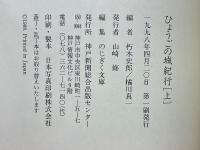 ひょうごの城紀行［上］
一九九八年四月二〇日　第一刷発行
編者　朽木史郎／橘川真一
発行者　山崎修
編集　のじぎく文庫
発行所　神戸新聞総合出版センター
神戸市中央区東川崎町一―五―七
電話　〇七八―三六二―七一四〇代
印刷・製本　日本写真印刷株式会社
落丁・乱丁本はお取り替えいたします
Printed in Japan